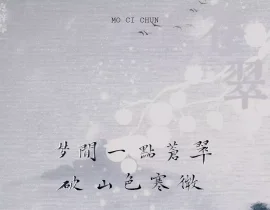 MO CI CHUN
翠
梦間一點蒼翠
欲山色寒微